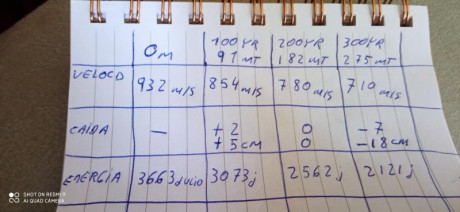 0M 100YR 200YR 300YR
91 MT 182 MT 275 MT
VELOCD 932 M/S 854 M/S 780 M/S 710 M/S
CAIDA — + 2 0 - 7
+ 5 CM 0 - 18 CM
ENERGIA 3663 JULIO 3073 j 2562 j 2121 j
SHOT ON REDMI 9
AI QUAD CAMERA